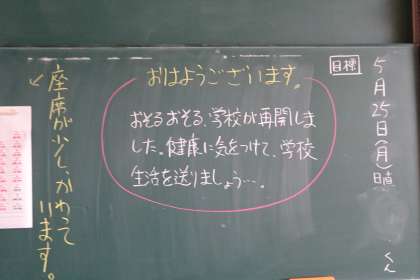 目標
5月25日(月)日直
くん
おはようございます。
おそるおそる、学校が再開しま
した。健康に気をつけて、学校
生活を送りましょう…。
座席が少し、かわって
います。